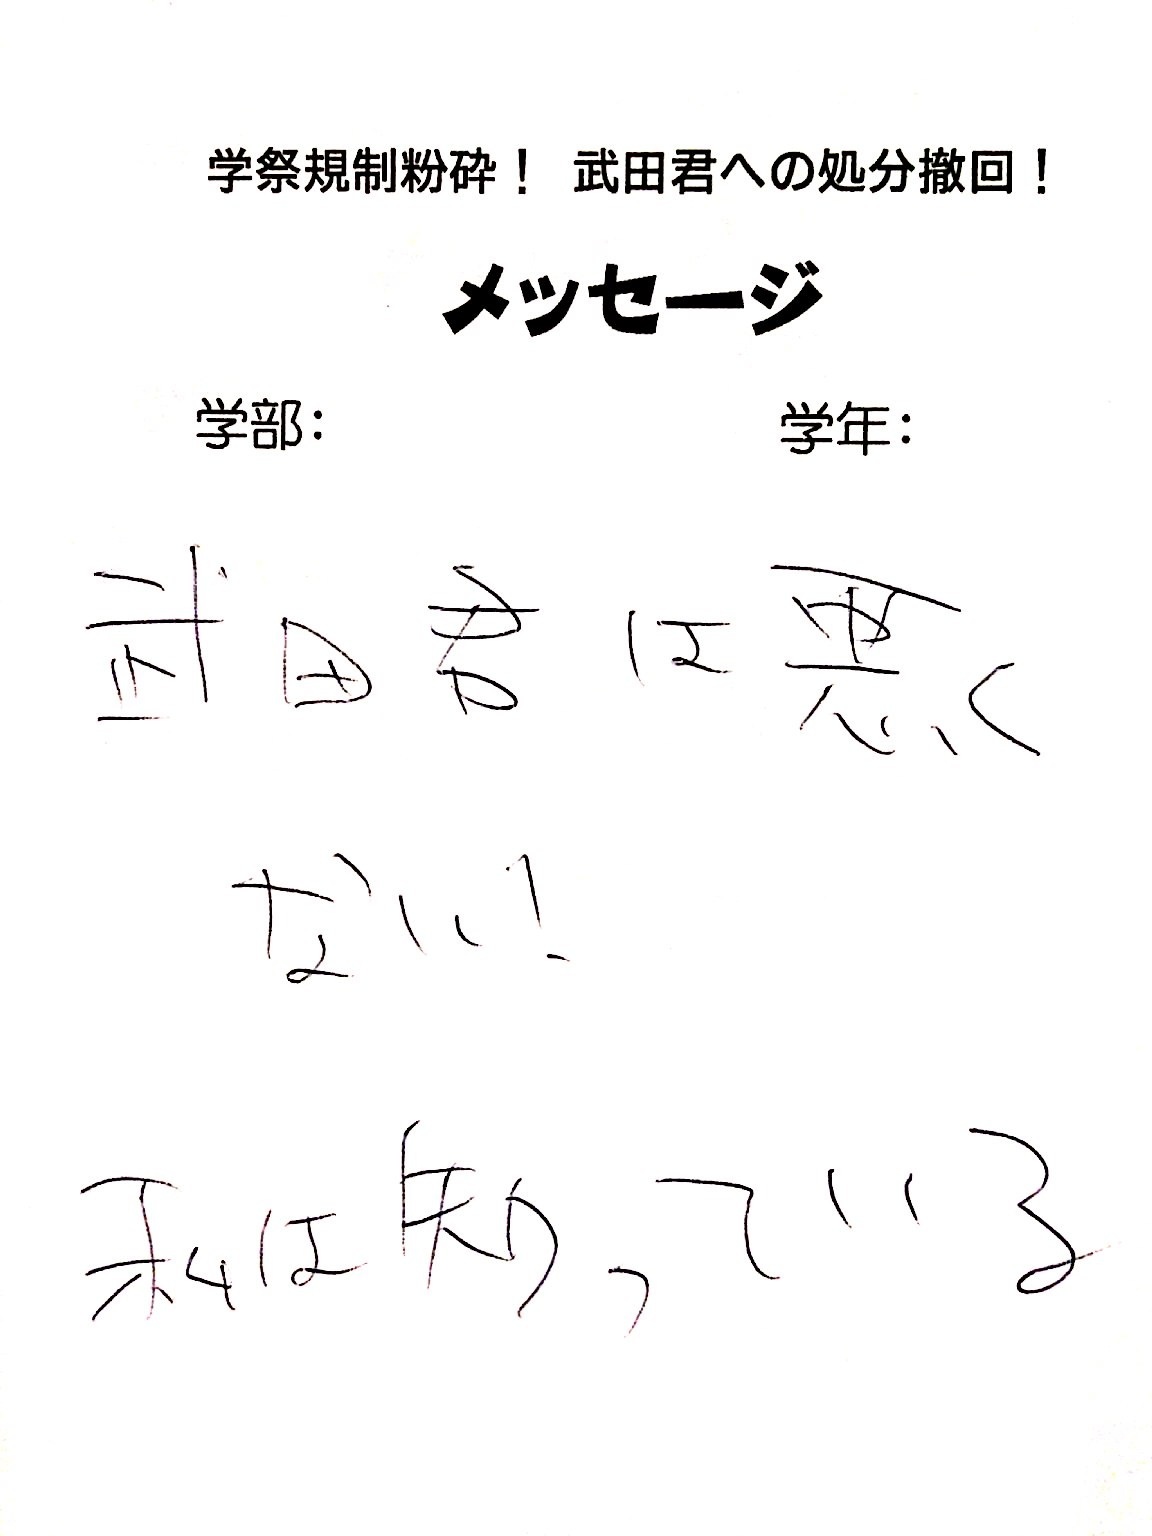 学祭規制粉砕！ 武田君への処分撤回！
メッセージ
学部： 学年：
武田君は悪く
ない！
私は知っている